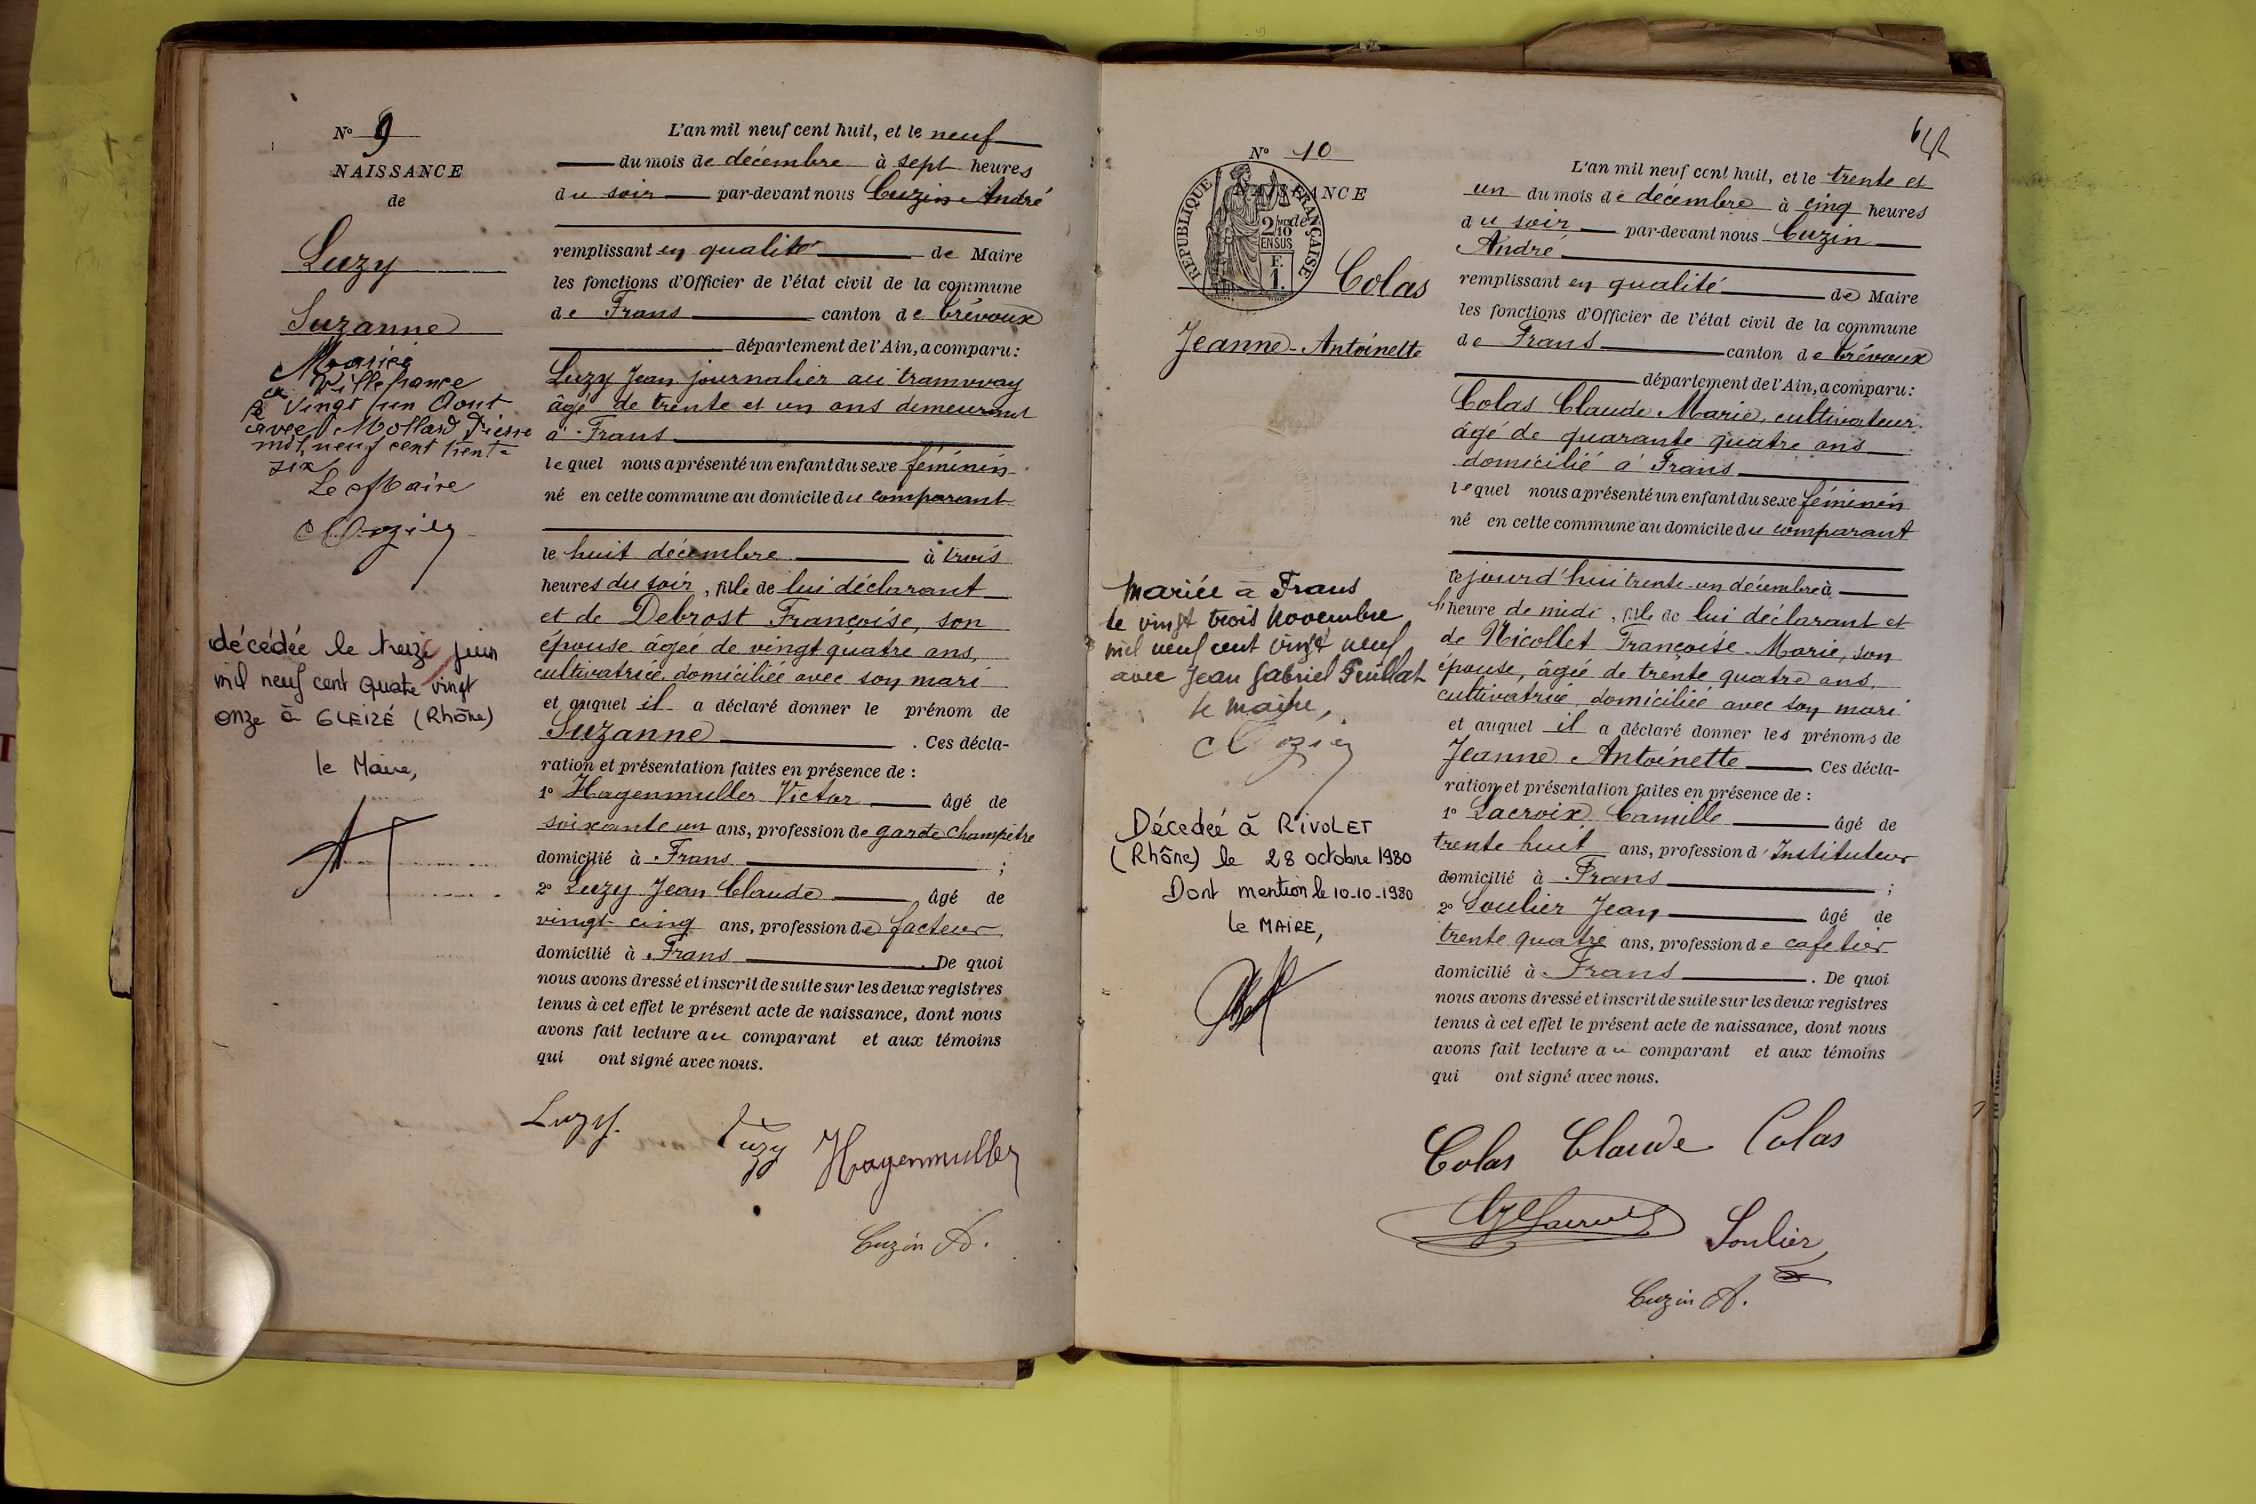 N° 9
NAISSANCE
de
Luzy
Suzanne
Mariée
à Villefrance
le Vingt un Aout
avec Mollard Pierre
mil neuf cent trente
six
Le Maire
décédée le treize juin
mil neuf cent quatre vingt
onze à GLEIZÉ (Rhône)
le Maire,
L'an mil neuf cent huit, et le neuf
du mois de décembre à sept heures
du soir par-devant nous Cuzin André
remplissant en qualité de Maire
les fonctions d'Officier de l'état civil de la commune
de Frans canton de Trévoux
département de l'Ain, a comparu :
Luzy Jean journalier au tramway
âgé de trente et un ans demeurant
à Frans
lequel nous a présenté un enfant du sexe féminin
né en cette commune au domicile du comparant
le huit décembre à trois
heures du soir, fille de lui déclarant
et de Debrost Françoise, son
épouse âgée de vingt quatre ans,
cultivatrice domiciliée avec son mari
et auquel il a déclaré donner le prénom de
Suzanne . Ces décla-
ration et présentation faites en présence de :
1° Hagenmuller Victor âgé de
soixante un ans, profession de garde champêtre
domicilié à Frans ;
2° Luzy Jean Claude âgé de
vingt-cinq ans, profession de facteur
domicilié à Frans . De quoi
nous avons dressé et inscrit de suite sur les deux registres
tenus à cet effet le présent acte de naissance, dont nous
avons fait lecture au comparant et aux témoins
qui ont signé avec nous.
Luzy. Luzy Hagenmuller
Cuzin A.
6
N° 10
NAISSANCE
de
REPUBLIQUE FRANÇAISE
2/10
EN SUS
F.
1.
Colas
Jeanne-Antoinette
Mariée à Frans
le vingt trois Novembre
mil neuf cent vingt neuf
avec Jean Gabriel
le maire,
Décedée à RIVOLET
(Rhône) le 28 octobre 1980
Dont mention le 10-10-1980
le MAIRE,
L'an mil neuf cent huit, et le trente et
un du mois de décembre à cinq heures
du soir par-devant nous Cuzin
André
remplissant en qualité de Maire
les fonctions d'Officier de l'état civil de la commune
de Frans canton de Trévoux
département de l'Ain, a comparu :
Colas Claude Marie, cultivateur
âgé de quarante quatre ans
domicilié à Frans
lequel nous a présenté un enfant du sexe féminin
né en cette commune au domicile du comparant
cejourd'hui trente-un décembre à
l'heure de midi, fille de lui déclarant et
de Nicollet Françoise-Marie, son
épouse, âgée de trente quatre ans,
cultivatrice domiciliée avec son mari
et auquel il a déclaré donner les prénoms de
Jeanne Antoinette Ces décla-
ration et présentation faites en présence de :
1° Lacroix Camille âgé de
trente huit ans, profession d'Instituteur
domicilié à Frans ;
2° Soulier Jean âgé de
trente quatre ans, profession de cafetier
domicilié à Frans . De quoi
nous avons dressé et inscrit de suite sur les deux registres
tenus à cet effet le présent acte de naissance, dont nous
avons fait lecture au comparant et aux témoins
qui ont signé avec nous.
Colas Claude Colas
Soulier
Cuzin A.